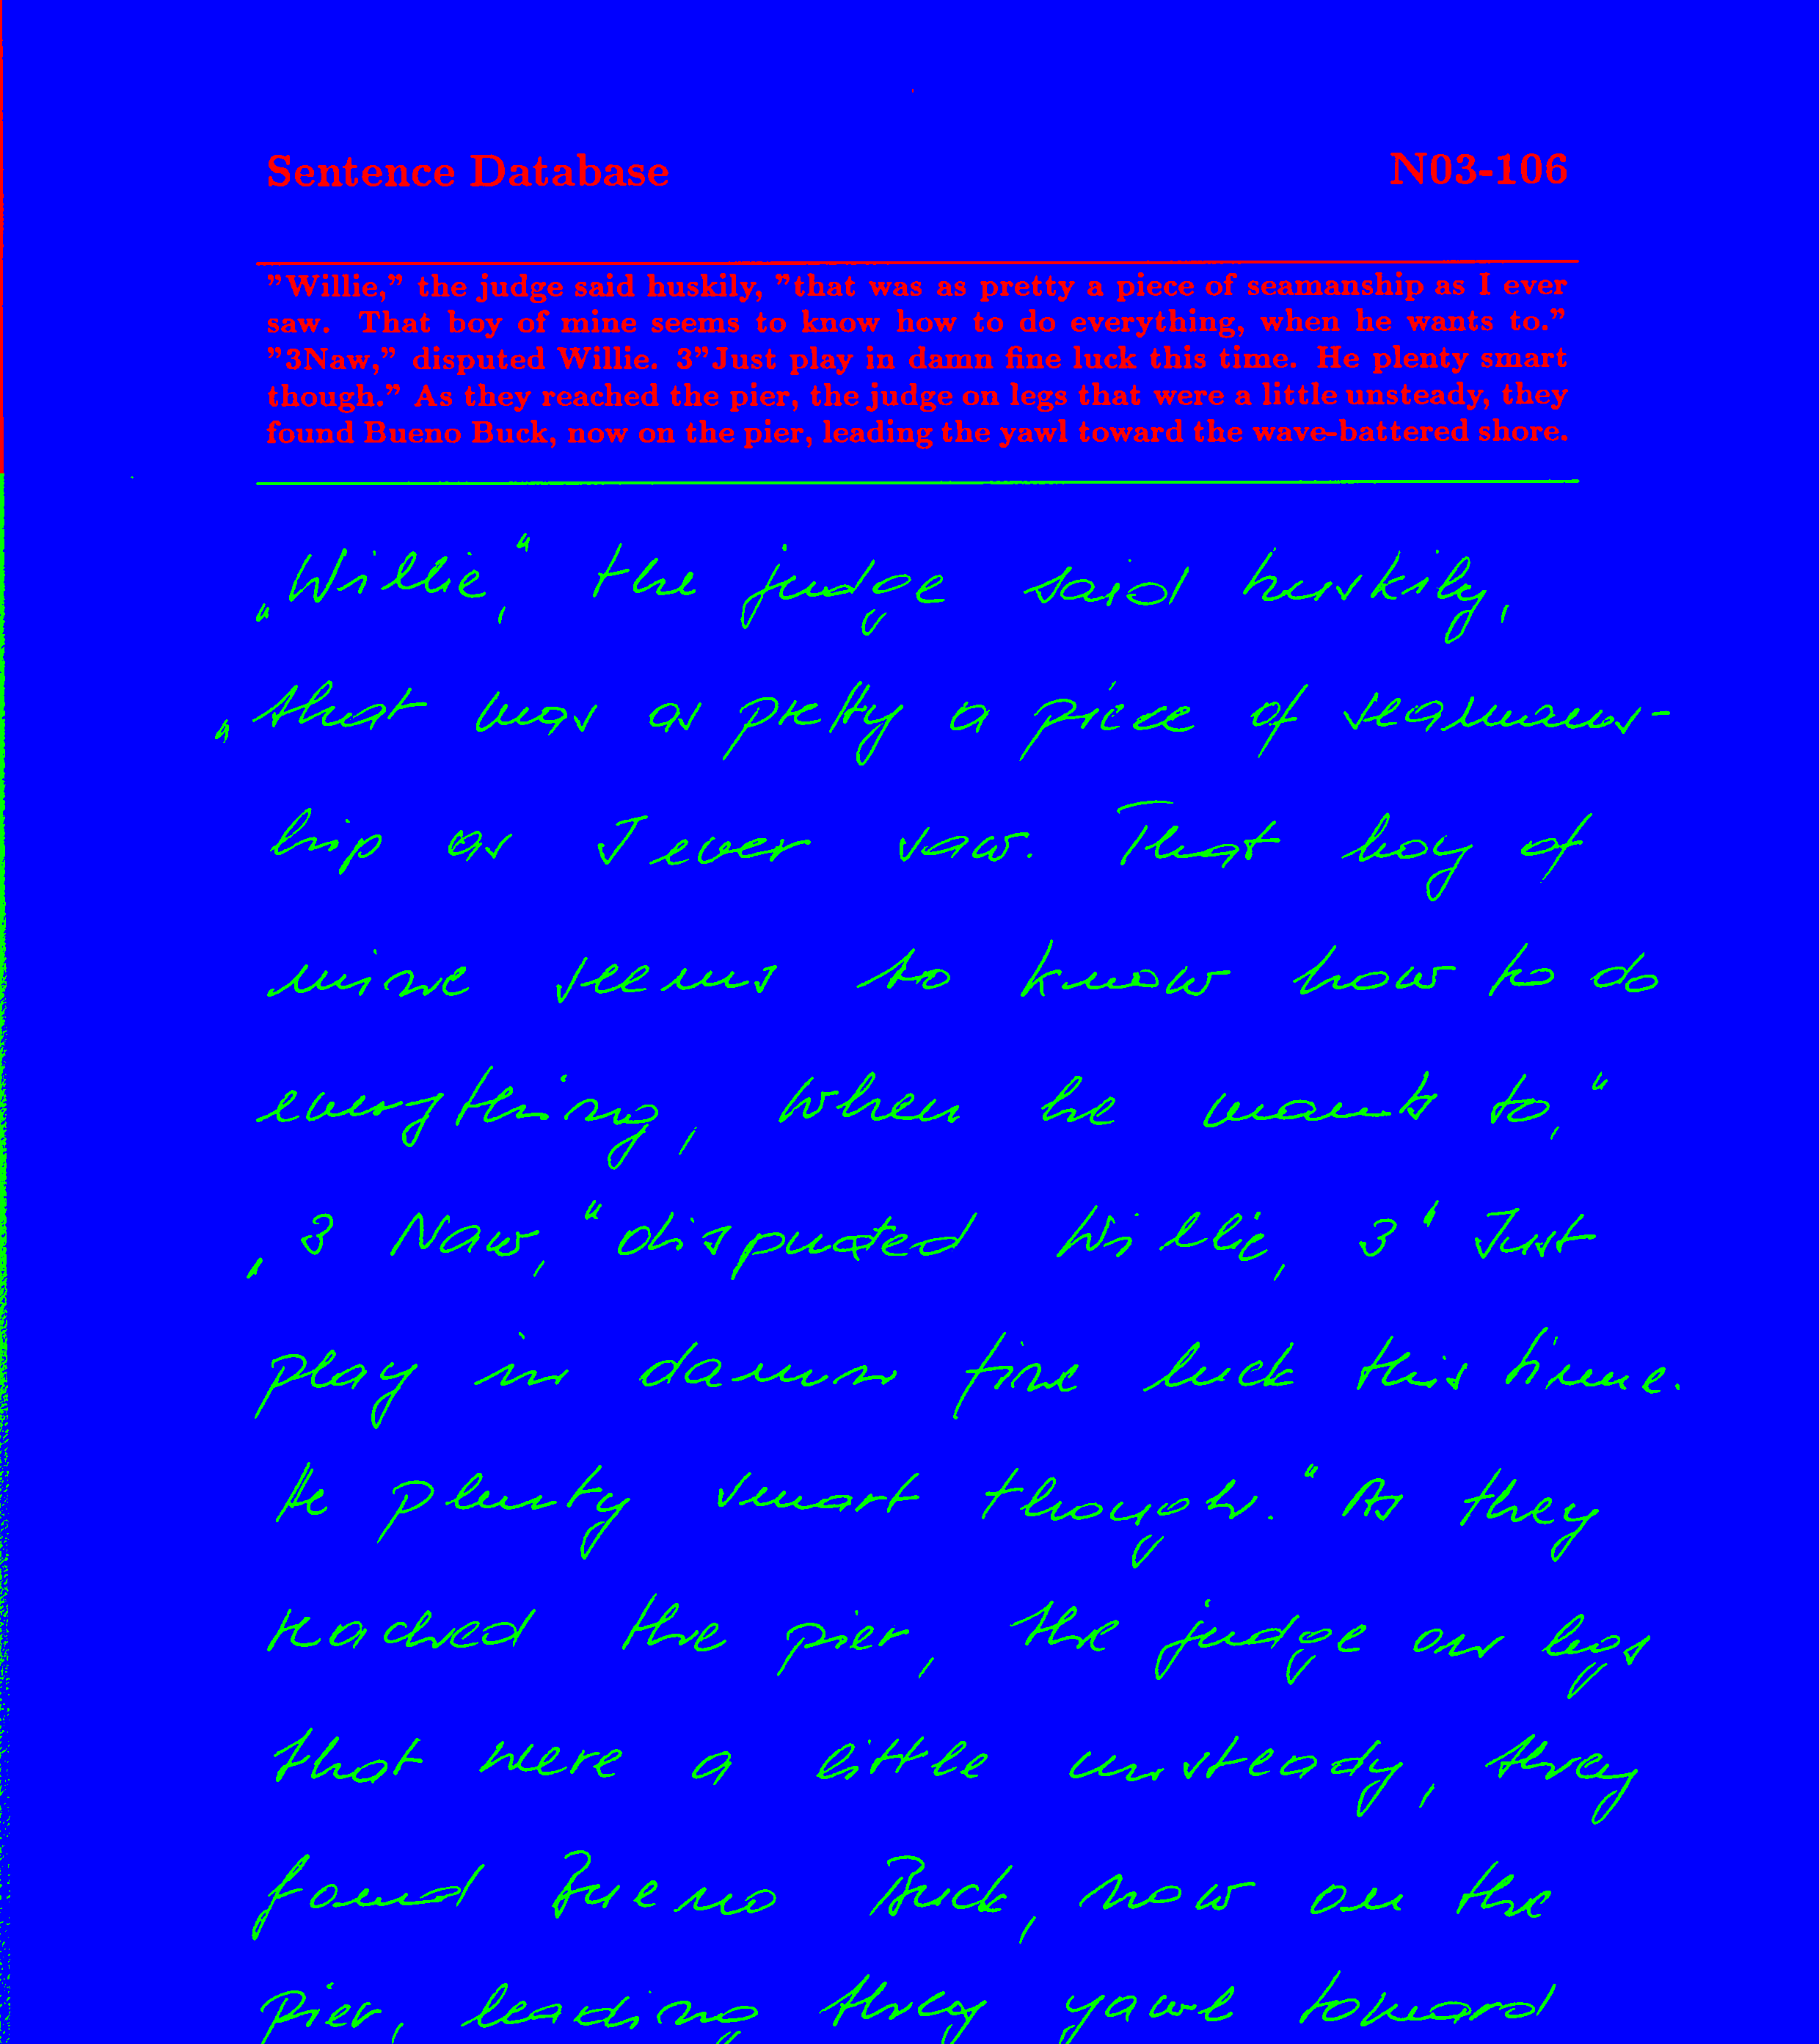 Sentence Database N03-106
"Willie," the judge said huskily, "that was as pretty a piece of seamanship as I ever
saw. That boy of mine seems to know how to do everything, when he wants to."
"3Naw," disputed Willie. 3"Just play in damn fine luck this time. He plenty smart
though." As they reached the pier, the judge on legs that were a little unsteady, they
found Bueno Buck, now on the pier, leading the yawl toward the wave-battered shore.
„Willie,“ the judge said huskily,
„that was as pretty a piece of seamans-
hip as I ever saw. That boy of
mine seems to know how to do
everything, when he wants to,“
‚3 Naw,“ disputed Willie, 3' Just
play in damn fine luck this time.
He plenty smart though.“ As they
reached the pier, the judge on legs
that were a little unsteady, they
found Bueno Buck, now on the
pier, leading they yawl toward